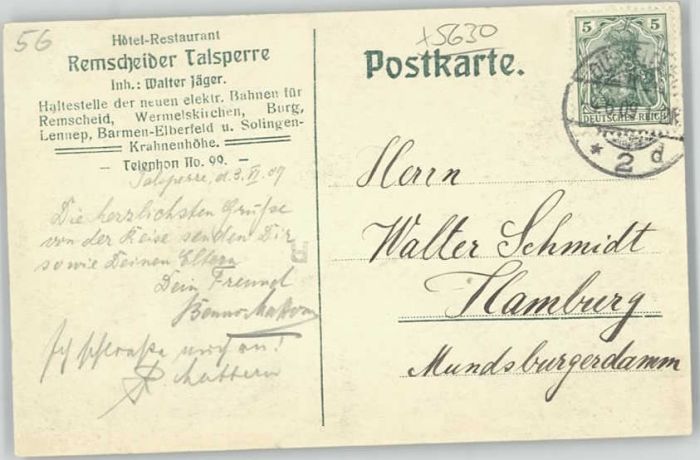 56
Hôtel-Restaurant
Remscheider Talsperre
Inh.: Walter Jäger.
Haltestelle der neuen elektr. Bahnen für
Remscheid, Wermelskirchen, Burg,
Lennep, Barmen-Elberfeld u. Solingen-
Krahnenhöhe.
– Telephon No. 99. –
Talsperre, d. 3. VI. 09
Die herzlichsten Grüße
von der Reise senden Dir
sowie Deinen Eltern
Dein Freund
Benno Mattern
Ich schließe mich an!
Mattern
+5630
Postkarte.
5 5
DEUTSCHES REICH
6 09
* 2 d
Herrn
Walter Schmidt
Hamburg
Mundsburgerdamm